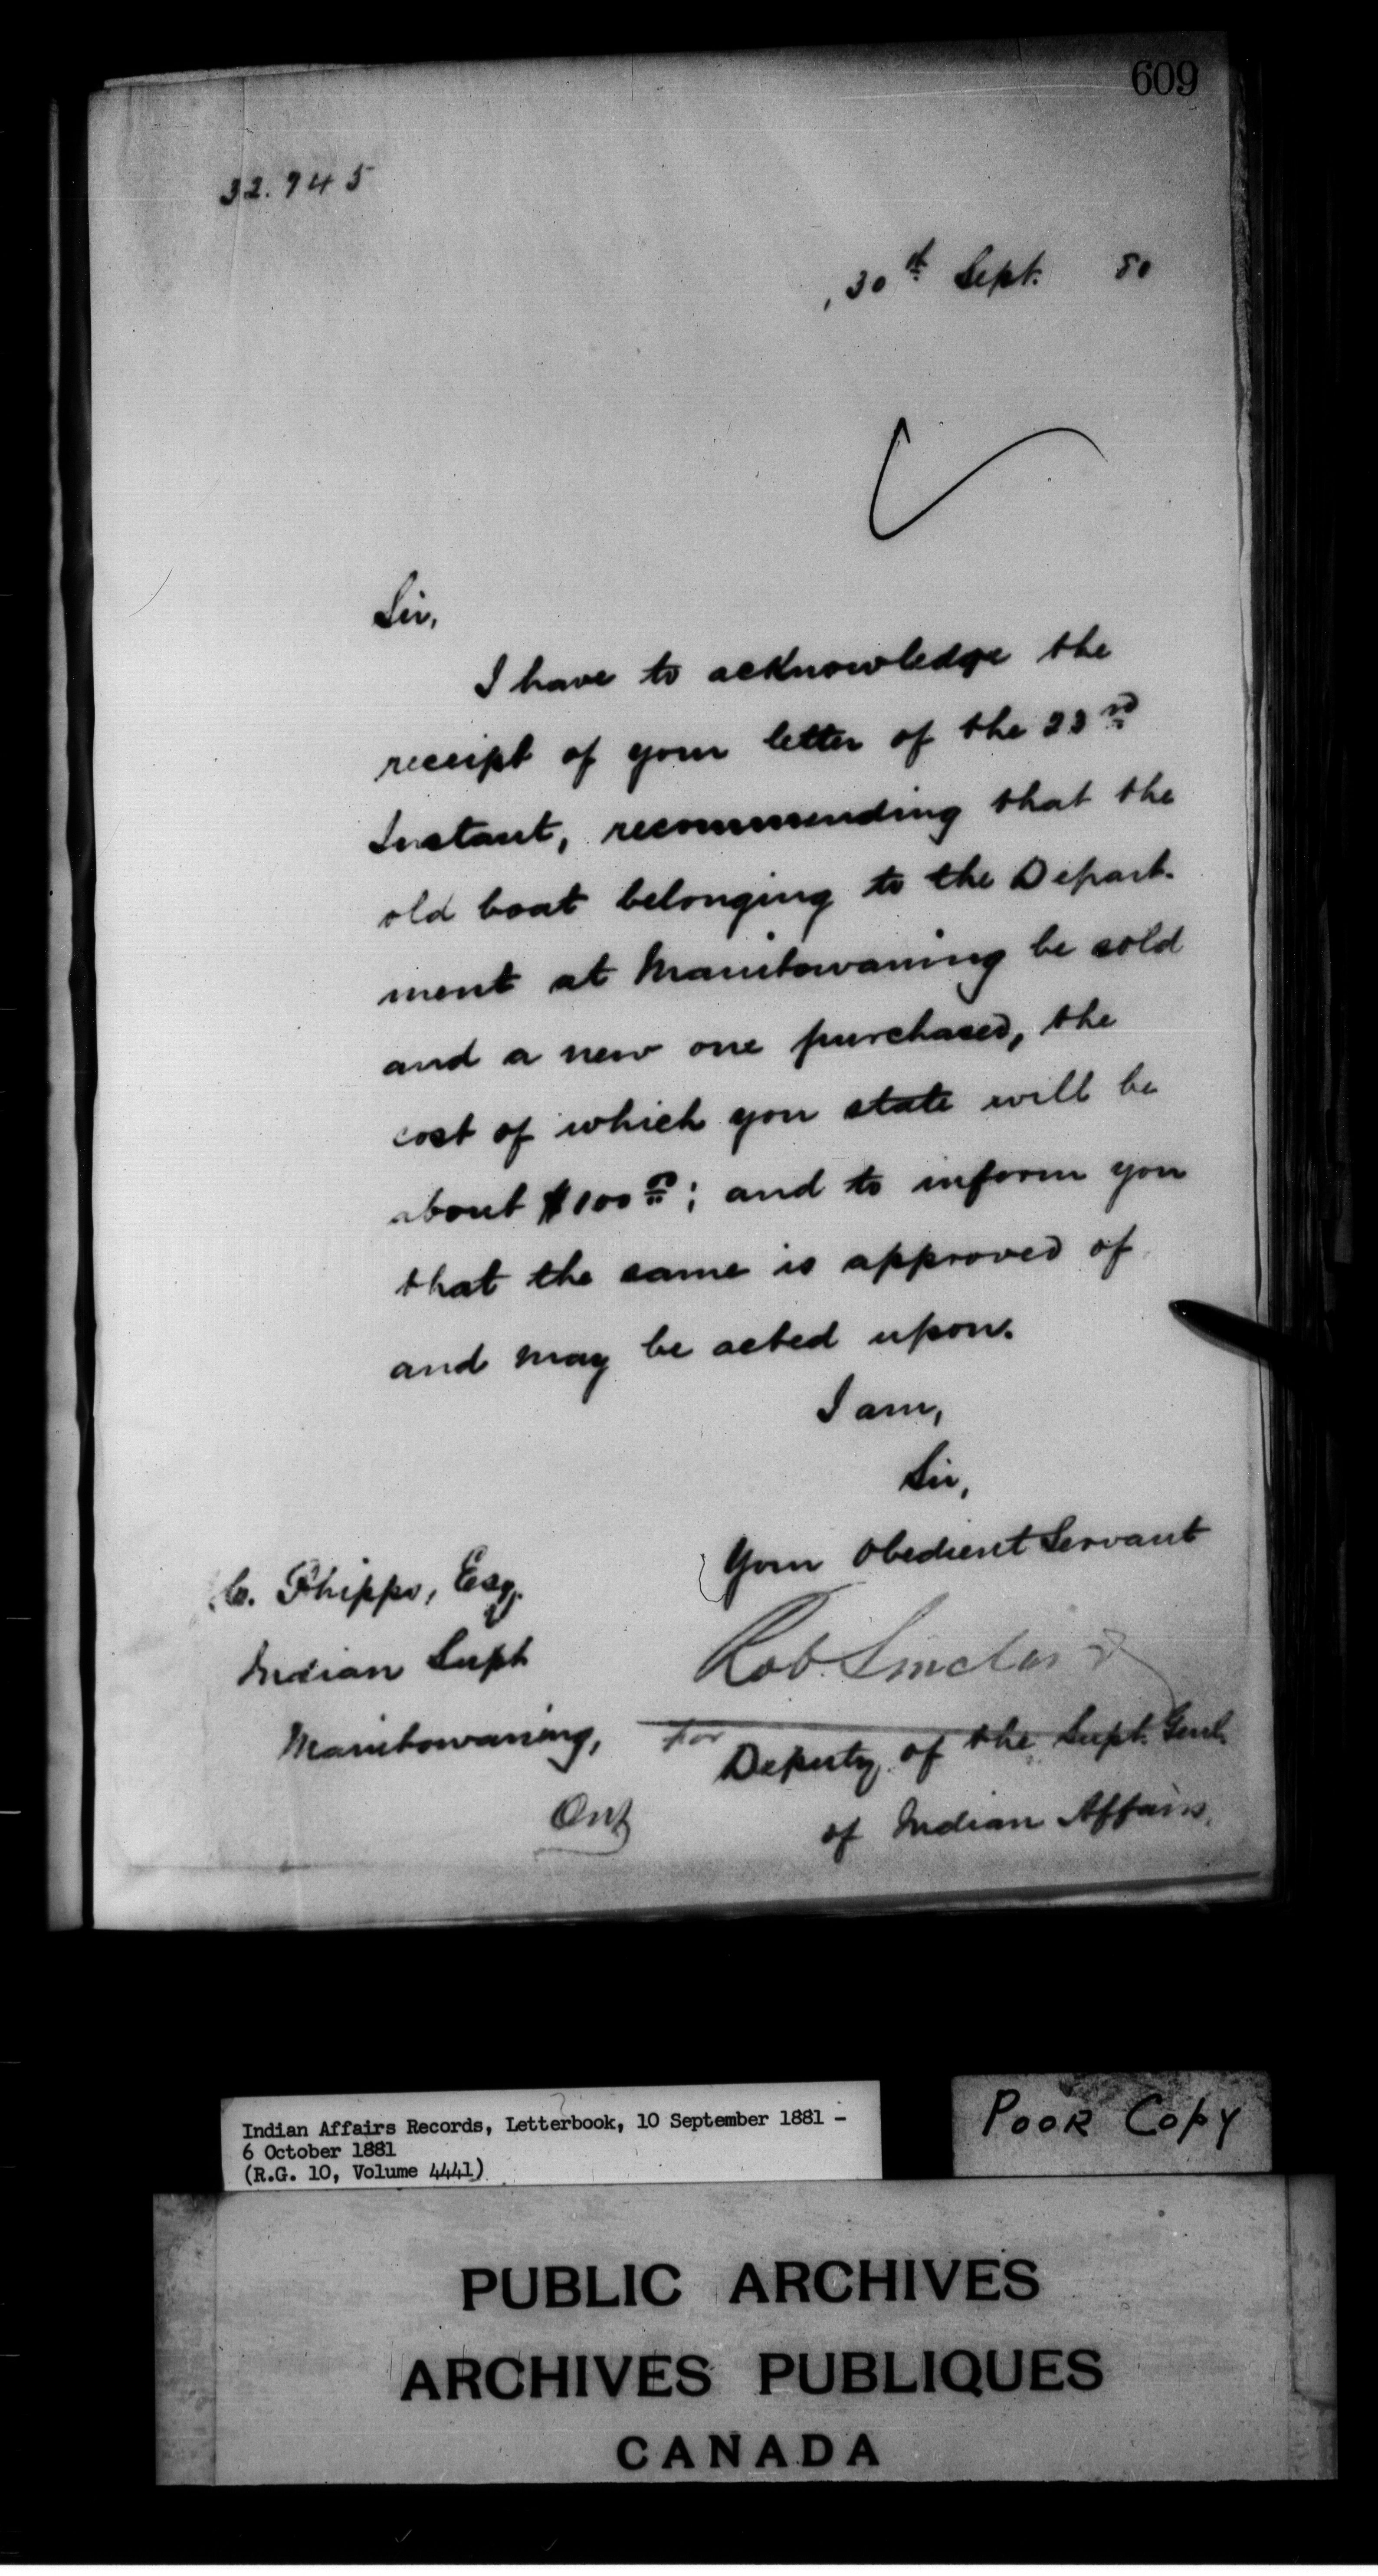 609
32.945
30th Sept. 80
Sir,
I have to acknowledge the
receipt of your letter of the 23rd
Instant, recommending that the
old boat belonging to the Depart-
ment at Manitowaning be sold
and a new one purchased, the
cost of which you state will be
about $100.00; and to inform you
that the same is approved of
and may be acted upon.
I am,
Sir,
Your Obedient Servant
Rob. Sinclair
for Deputy of the Supt. Genl.
of Indian Affairs.
C. Phipps, Esq.
Indian Supt
Manitowaning,
Ont
Indian Affairs Records, Letterbook, 10 September 1881 -
6 October 1881
(R.G. 10, Volume 4441)
POOR COPY
PUBLIC ARCHIVES
ARCHIVES PUBLIQUES
CANADA